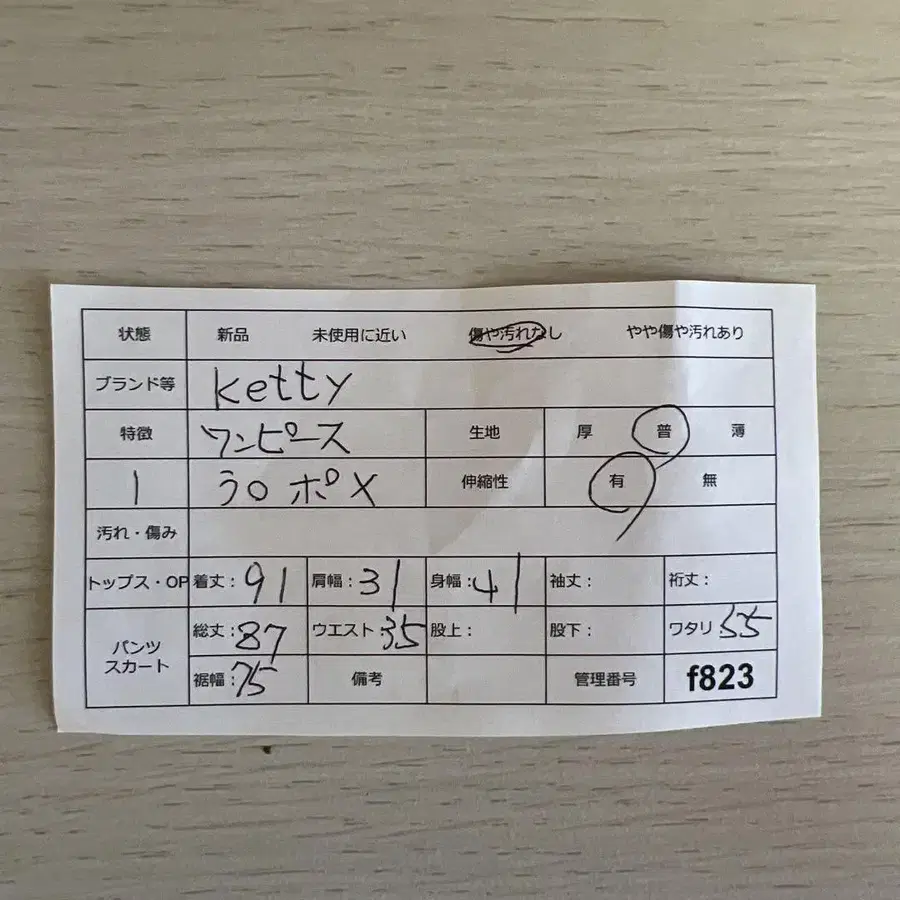 状態 新品 未使用に近い 傷や汚れなし やや傷や汚れあり
ブランド等 ketty
特徴 ワンピース 生地 厚 普 薄
1 うロ ポ X 伸縮性 有 無
汚れ・傷み
トップス・OP 着丈:91 肩幅:31 身幅:41 袖丈: 裄丈:
パンツ スカート 総丈:87 ウエスト:35 股上: 股下: ワタリ:55
裾幅:75 備考 管理番号 f823